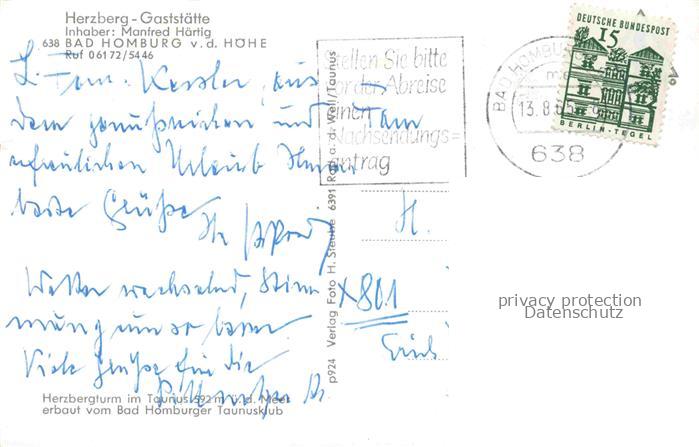 Herzberg-Gaststätte
Inhaber: Manfred Härtig
638 BAD HOMBURG v. d. HÖHE
Ruf 06172/5446
L. Fam. Kessler, aus
dem und
erfreulichen Urlaub Ihnen
beste Grüße
Ihr
Wetter wechselnd, Stim
mung um so besser
Viele Grüße für die
Herzbergturm im Taunus 592 m ü. d. Meer
erbaut vom Bad Homburger Taunusklub
p924 Verlag Foto H. Steube 6391 Rod a. d. Weil/Taunus
Stellen Sie bitte
vor der Abreise
einen
Nachsendungs=
antrag
BAD HOMBURG
13.8.65
638
DEUTSCHE BUNDESPOST
15
BERLIN-TEGEL
H.
x801
privacy protection
Datenschutz